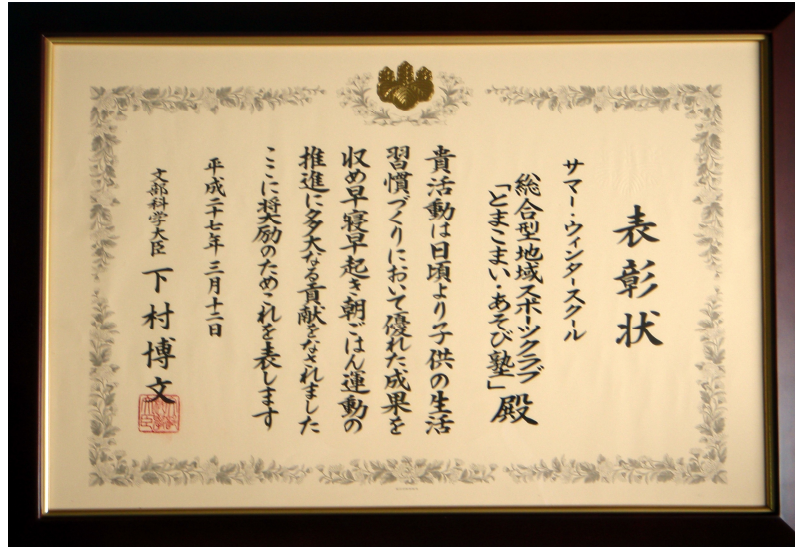 表彰状
サマー・ウィンタースクール
総合型地域スポーツクラブ
「とまこまい・あそび塾」殿
貴活動は日頃より子供の生活
習慣づくりにおいて優れた成果を
収め早寝早起き朝ごはん運動の
推進に多大なる貢献をなされました
ここに奨励のためこれを表します
平成二十七年三月十二日
文部科学大臣 下村博文